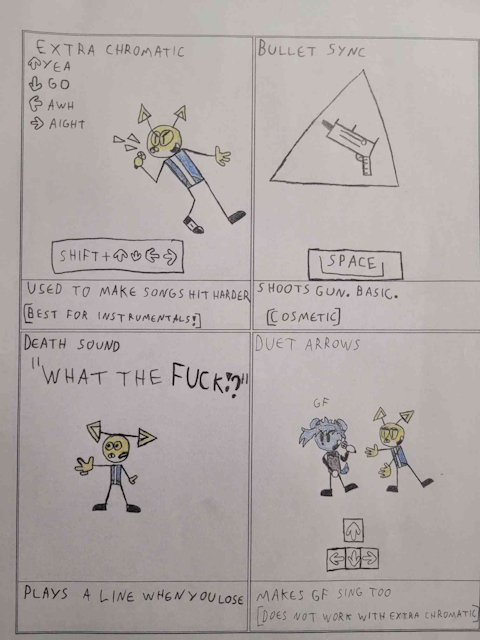 EXTRA CHROMATIC
⇧YEA
⇩GO
⇦AWH
⇨AIGHT
SHIFT+⇧⇩⇦⇨
USED TO MAKE SONGS HIT HARDER
[BEST FOR INSTRUMENTALS!]
BULLET SYNC
SPACE
SHOOTS GUN. BASIC.
[COSMETIC]
DEATH SOUND
"WHAT THE FUCK!?"
PLAYS A LINE WHEN YOU LOSE
DUET ARROWS
GF
⇧
⇦⇩⇨
MAKES GF SING TOO
[DOES NOT WORK WITH EXTRA CHROMATIC]